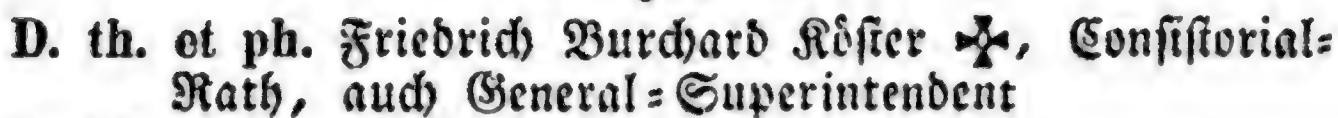 D. th. et ph. Friedrich Burchard Köster ✠, Consistorial=
Rath, auch General=Superintendent